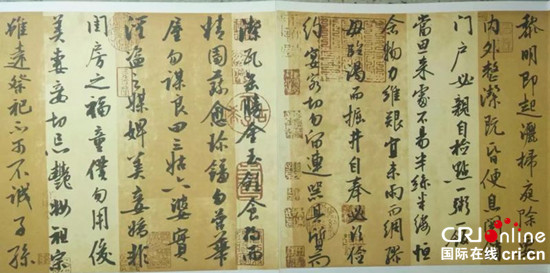 黎明即起灑掃庭除
内外整潔既昏便息關
門户必親自检點一粥一
當思来處不易半絲半縷恒
念物力維艱宜未雨而綢繆
毋臨渴而掘井自奉必須儉
約宴客切勿留連器具質而
潔瓦缶勝金玉飲食約而
精園蔬愈珍饈勿營華
屋勿謀良田三姑六婆實
淫盗之媒婢美妾嬌非
閨房之福童僕勿用俊
美妻妾切忌艷妝祖宗
雖遠祭祀不可不誠子孫
CRI Online
国际在线 cri.cn